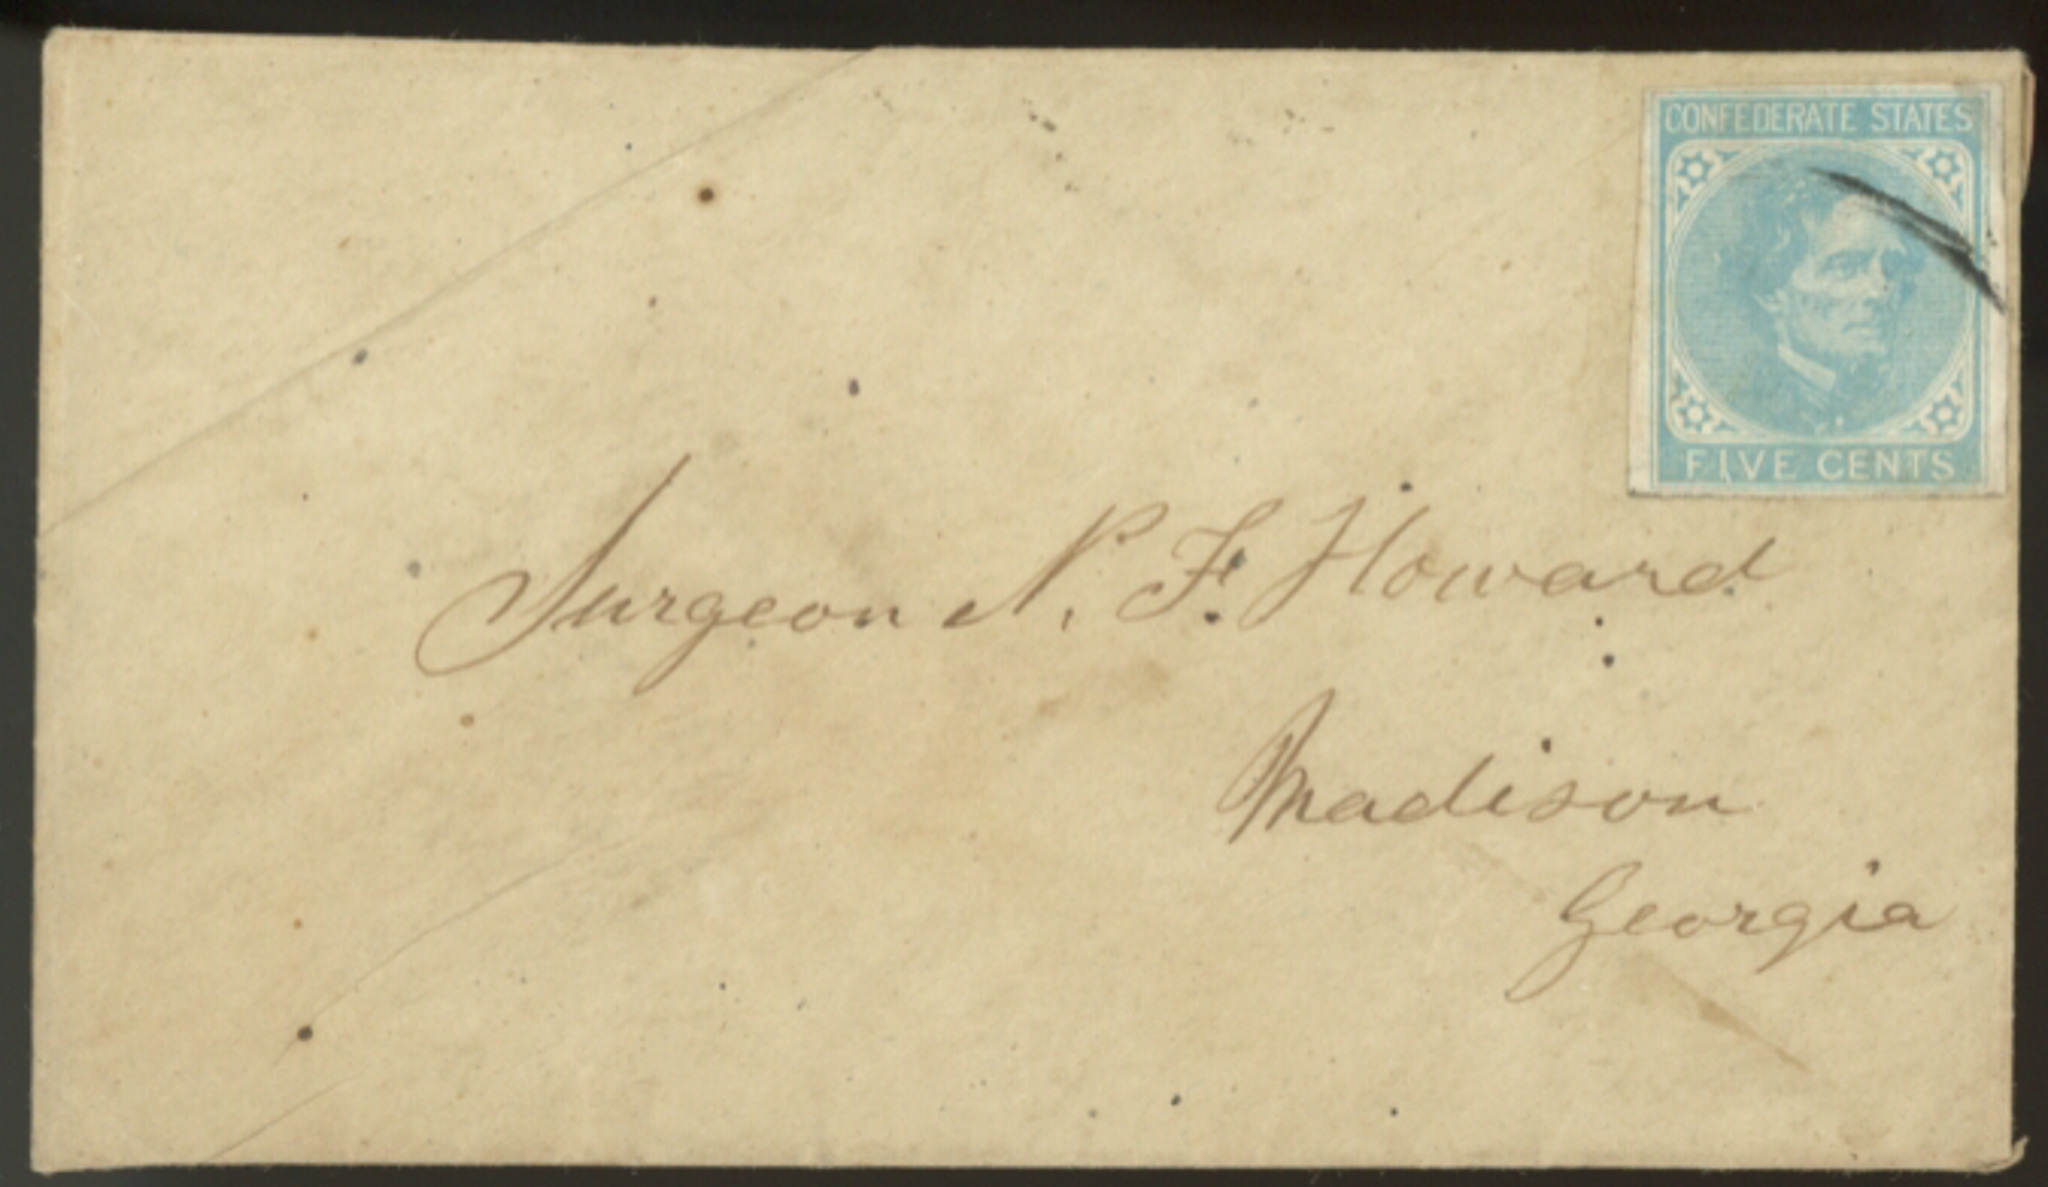 CONFEDERATE STATES
FIVE CENTS
Surgeon N. F. Howard
Madison
Georgia